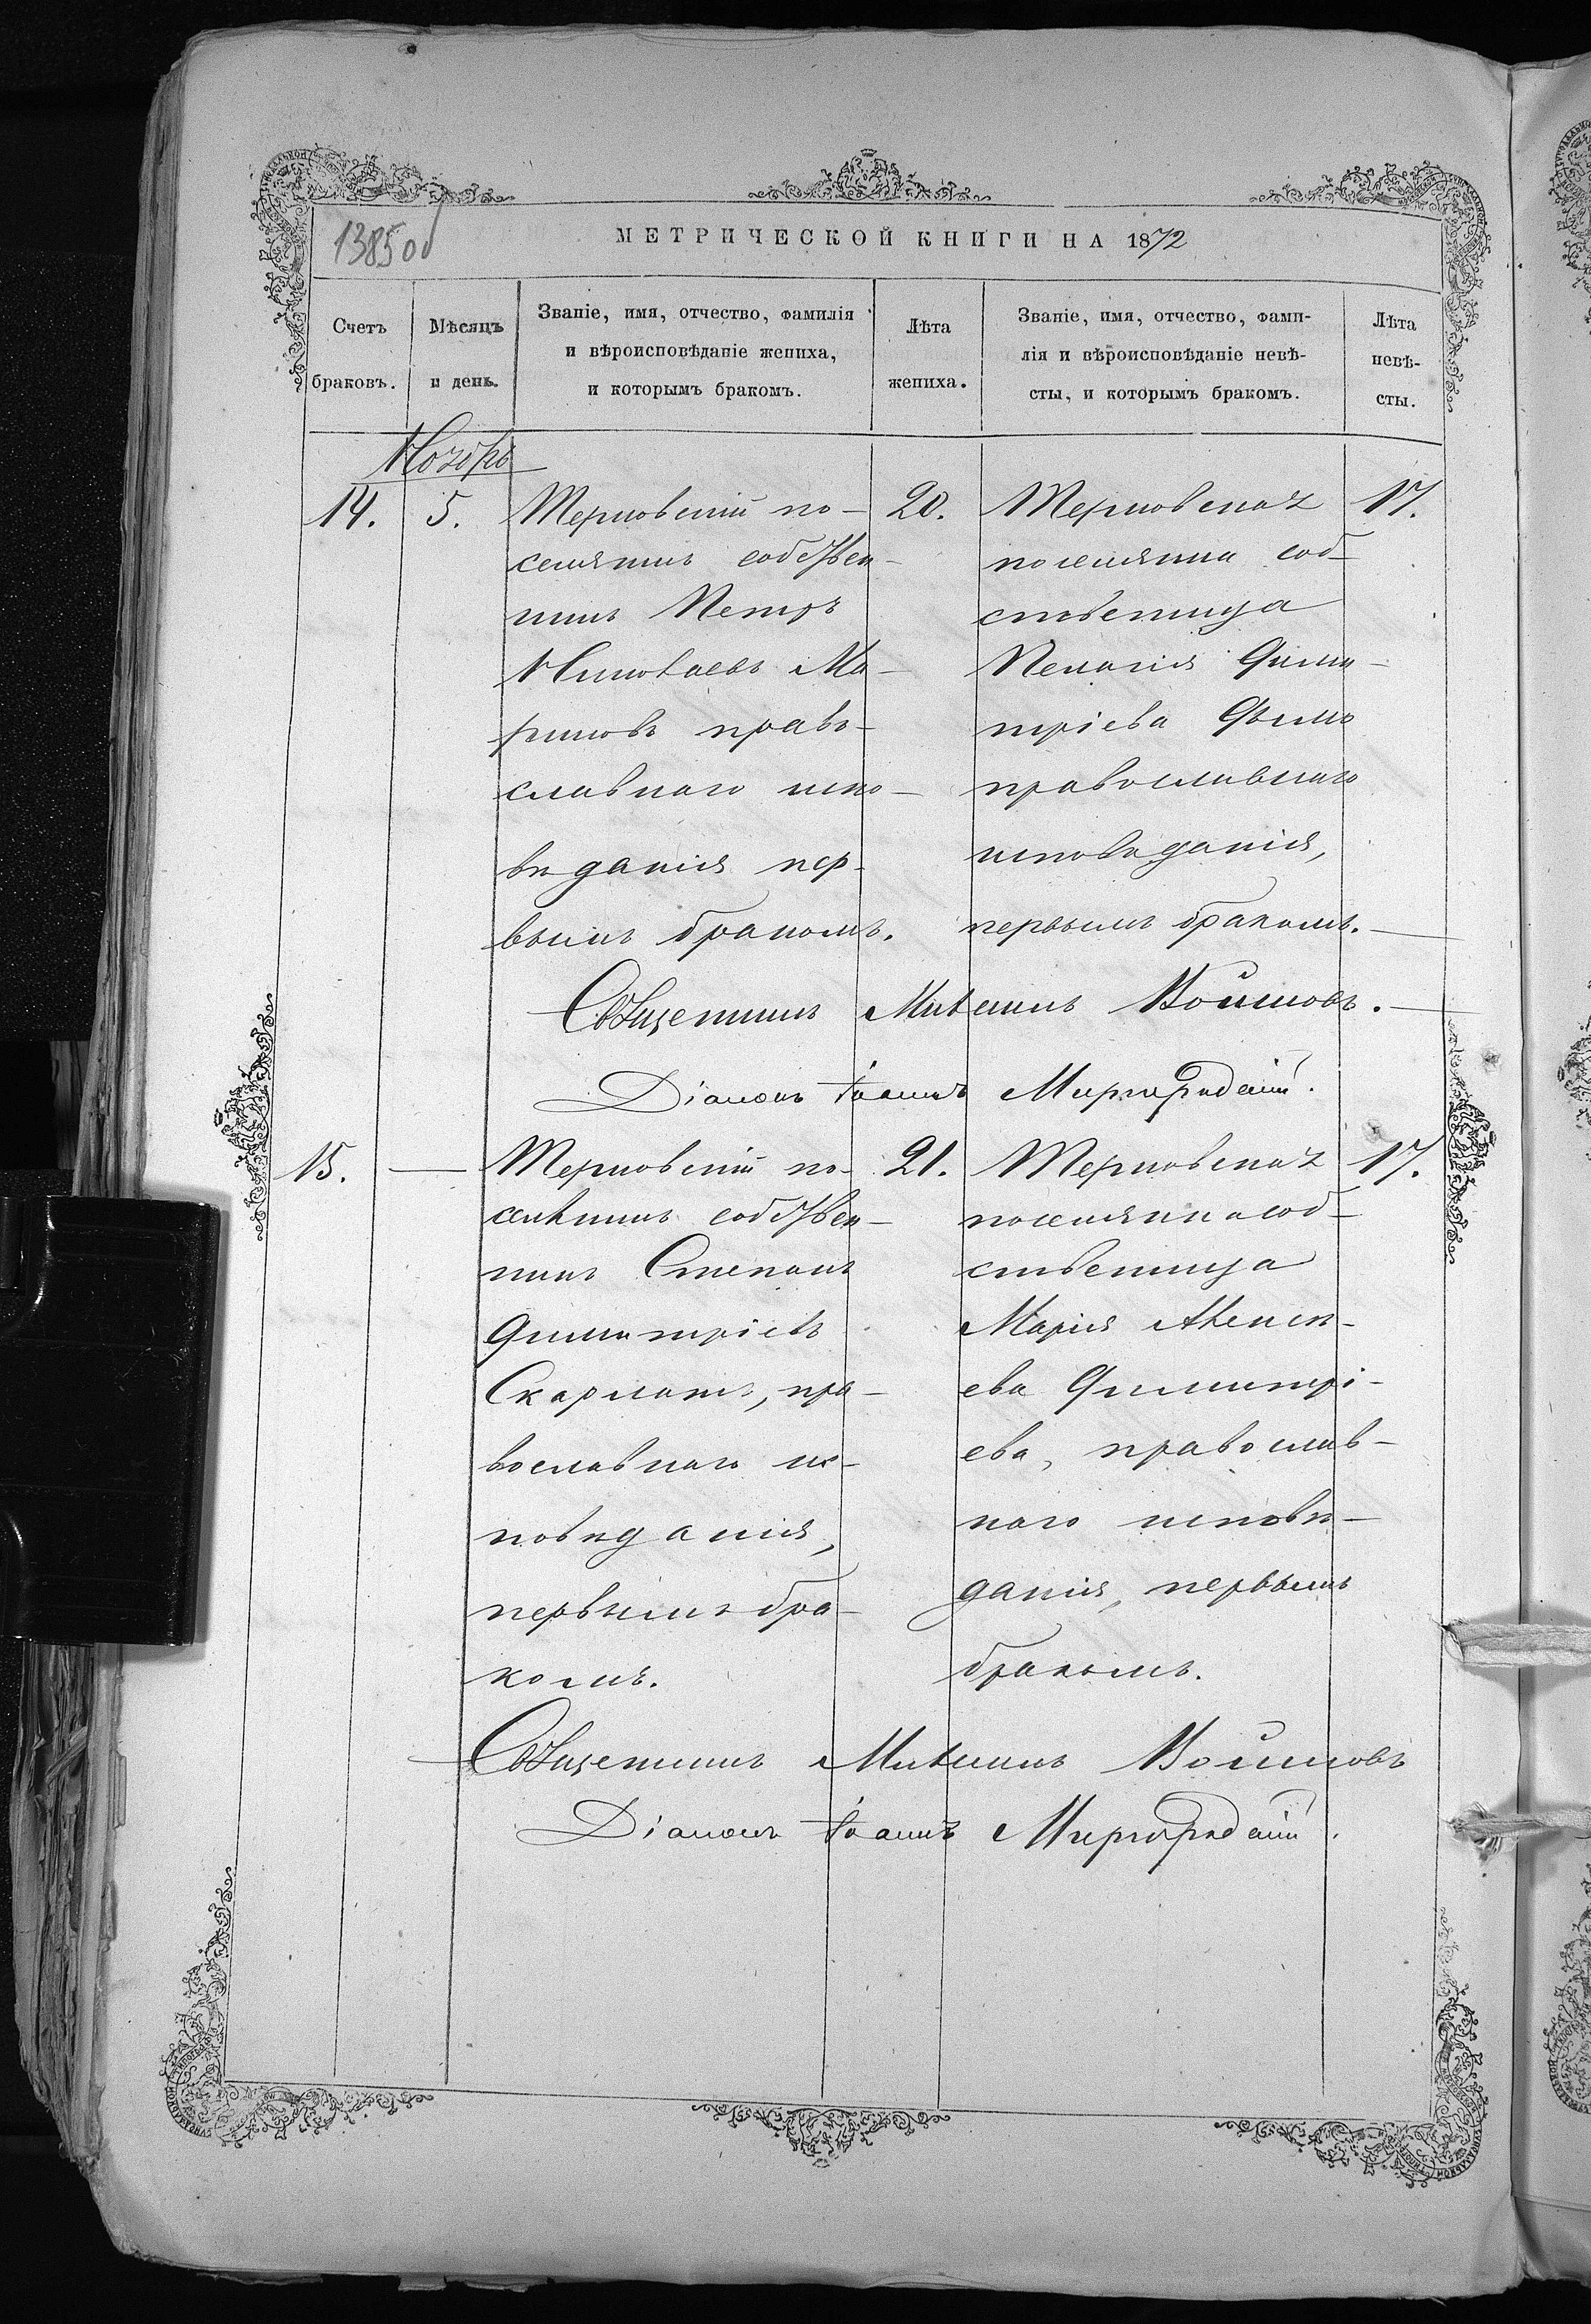 1385об
МЕТРИЧЕСКОЙ КНИГИ НА 1872
Счетъ браковъ.
Мѣсяцъ и день.
Званіе, имя, отчество, фамилія и вѣроисповѣданіе жениха, и которымъ бракомъ.
Лѣта жениха.
Званіе, имя, отчество, фами-
лія и вѣроисповѣданіе невѣ-
сты, и которымъ бракомъ.
Лѣта невѣ-
сты.
Ноябрь
14.
5.
Терновскій по-
селянинъ собствен-
никъ Петръ
Николаевъ Ма-
риновъ право-
славнаго испо-
вѣданія пер-
вымъ бракомъ.
20.
Терновская
поселянка соб-
ственица
Пелагія Дими-
тріева
православнаго
исповѣданія,
первымъ бракомъ.
17.
Священникъ Михаилъ Войновъ.
Діаконъ Іоаннъ Миргородскій.
15.
—
Терновскій по-
селянинъ собствен-
никъ Степанъ
Димитріевъ
Скарлатъ, пра-
вославнаго ис-
повѣданія,
первымъ бра-
комъ.
21.
Терновская
поселянка соб-
ственица
Марія Алексѣ-
ева Димитрі-
ева, православ-
наго исповѣ-
данія, первымъ
бракомъ.
17.
Священникъ Михаилъ Войновъ
Діаконъ Іоаннъ Миргородскій.